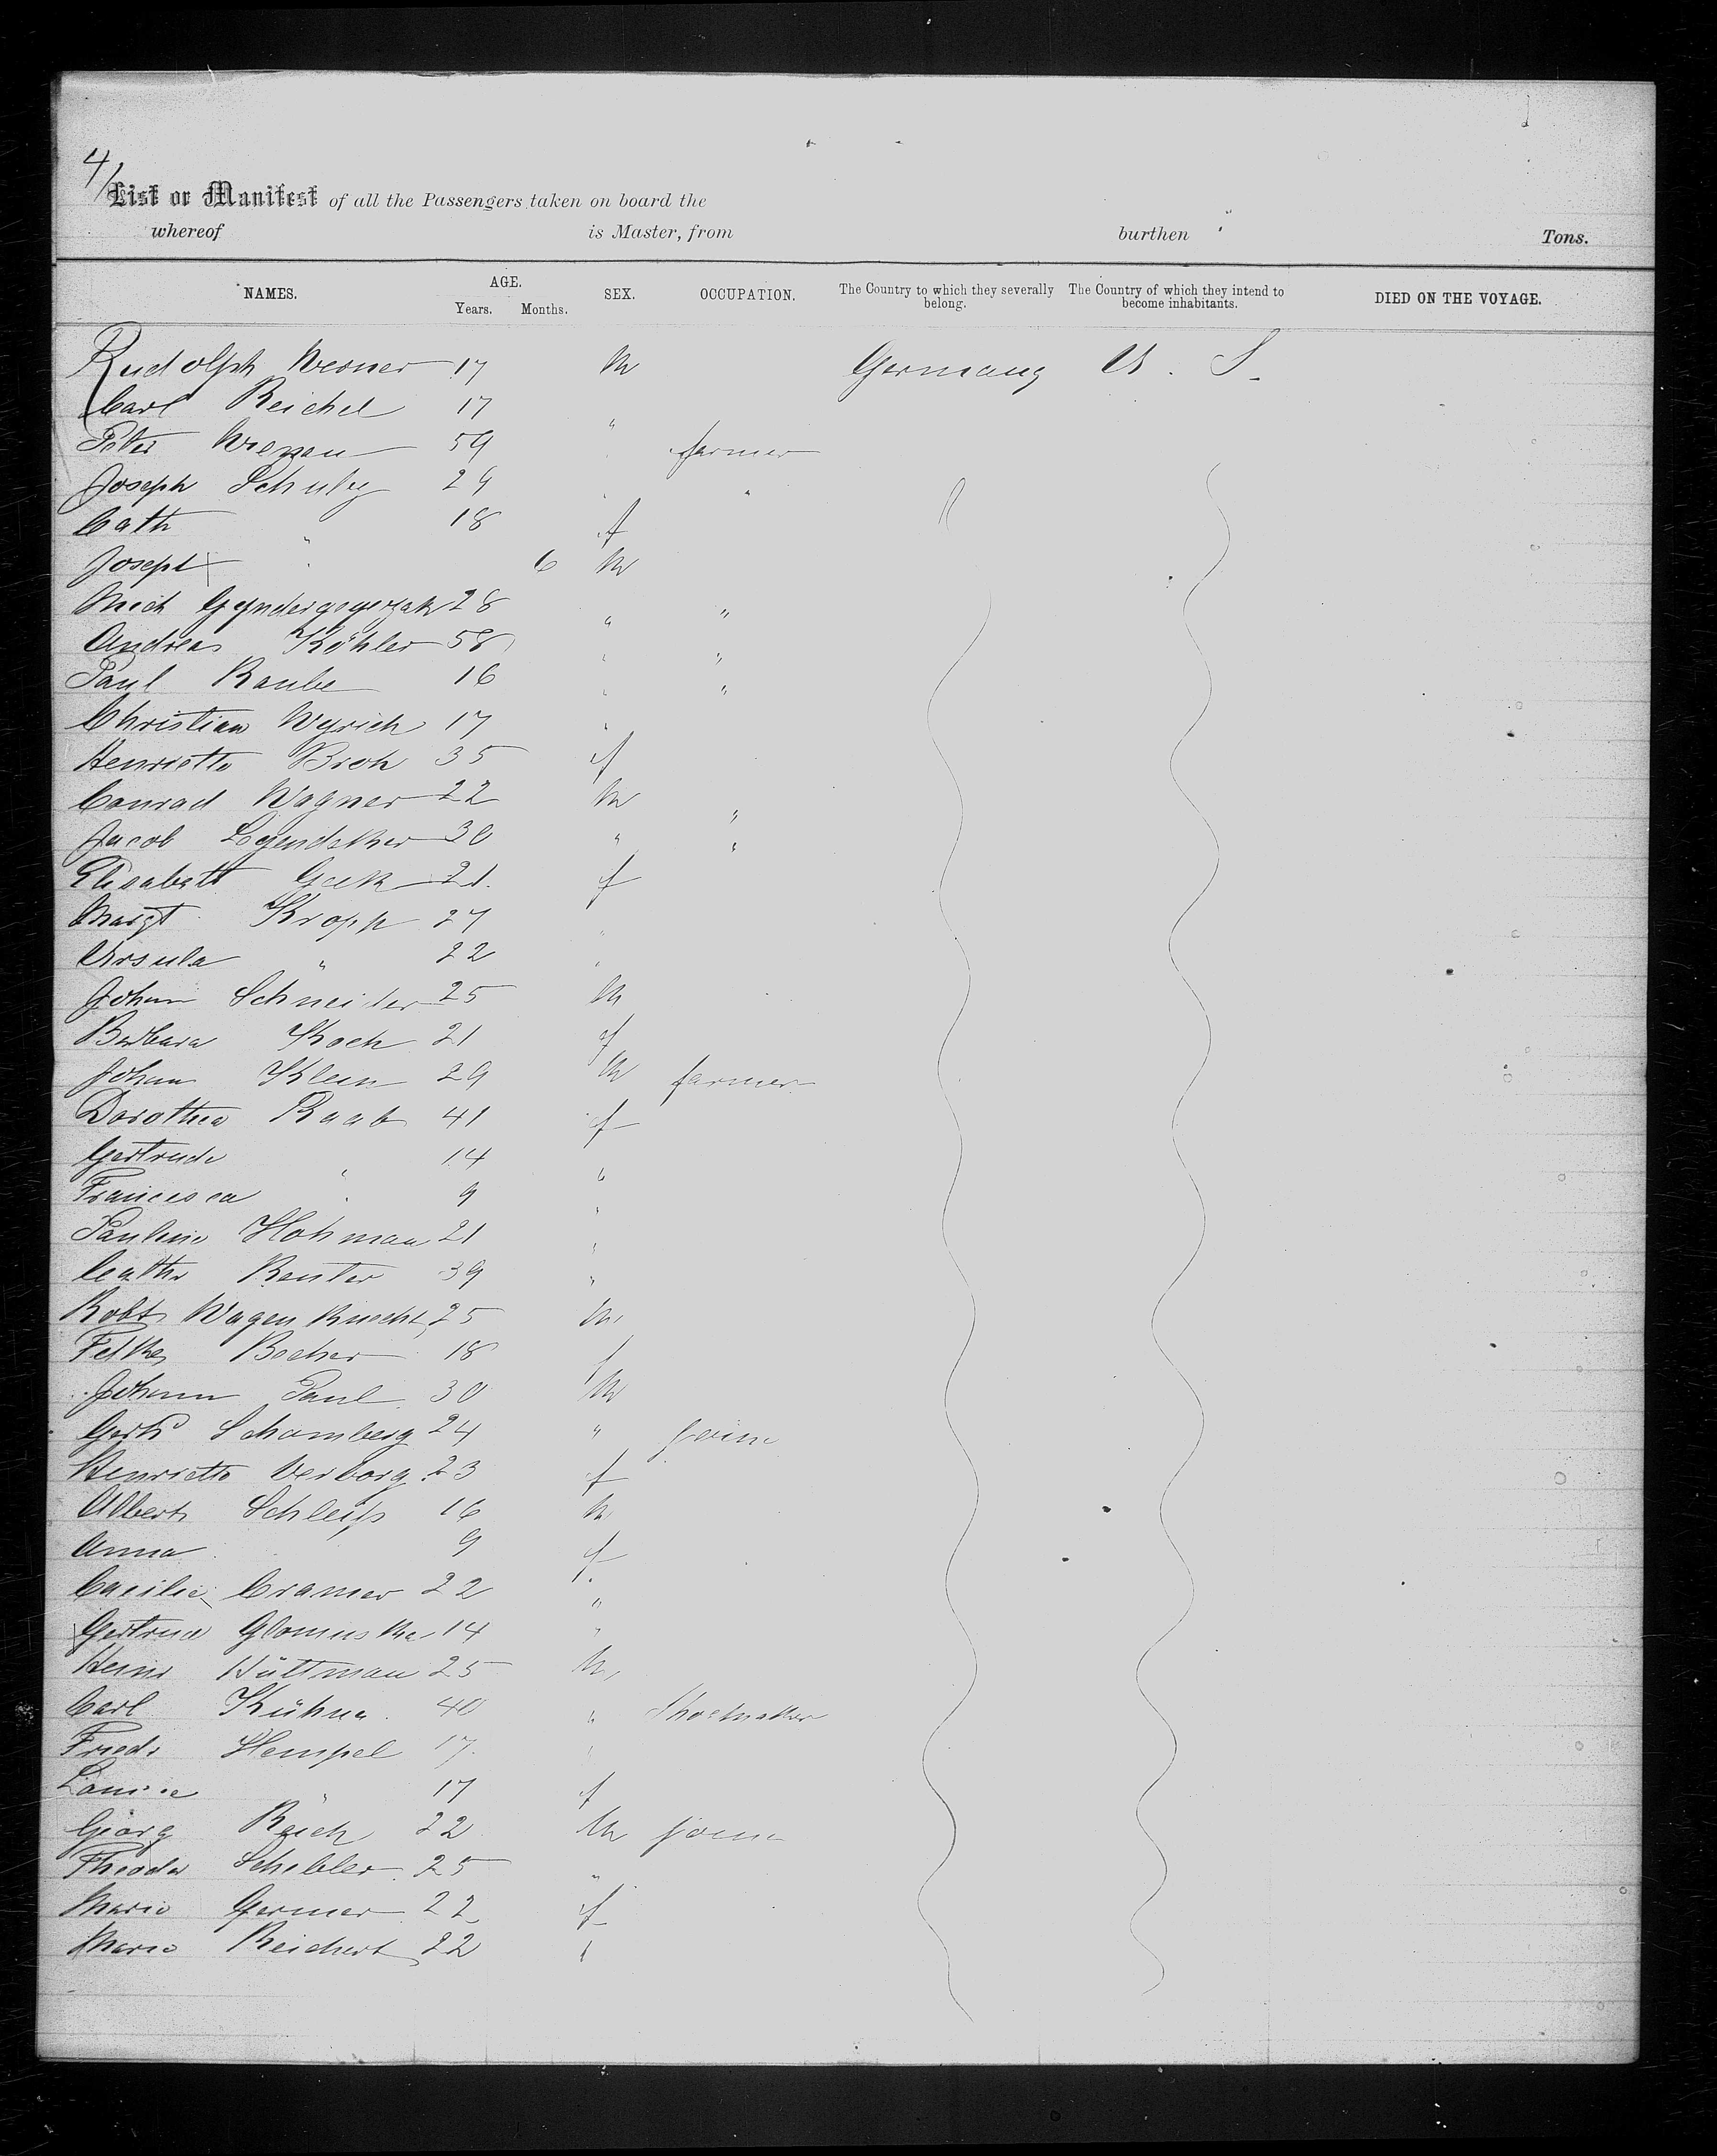 4/
List or Manifest of all the Passengers taken on board the
whereof is Master, from burthen Tons.
NAMES. AGE. Years. Months. SEX. OCCUPATION. The Country to which they severally belong. The Country of which they intend to become inhabitants. DIED ON THE VOYAGE.
Rudolph Werner 17 M Germany U. S.
Carl Reichel 17
Peter 59 " farmer
Joseph Schuly 29 " "
Cath " 18 f
Joseph " 6 M
Mich 28 " "
Andreas Köhler 58 " "
Paul Raube 16 " "
Christian Wyrich 17 "
Henriette Broh 35 f
Conrad Wagner 22 M "
Jacob Legendecker 30 " "
Elisabeth Geek 21 f
Margt Kropp 27 "
Ursula " 22 "
Johann Schneider 25 M
Barbara Koch 21 f
Johann Klein 29 M farmer
Dorothea Raab 41 f
Gertrude " 14 "
Francesca " 9 "
Pauline Hohman 21 "
Cathr Reuter 39 "
Robt Wagenknecht 25 M
Becker 18 f
Johann Paul 30 M
Schomberg 24 " joine
Henriette Verborg 23 f
Albert Schleifs 16 M
Anna 9 f
Cacilie Cramer 22 "
Gertrud Glomuska 14 "
Heinr Hüttman 25 M
Carl Kühna 40 " Shoemaker
Friedr Hempel 17 "
Louise " 17 f
Georg Reich 22 M joine
Theodor Schibler 25 "
Marie Germer 22 f
Marie Reichert 22 "